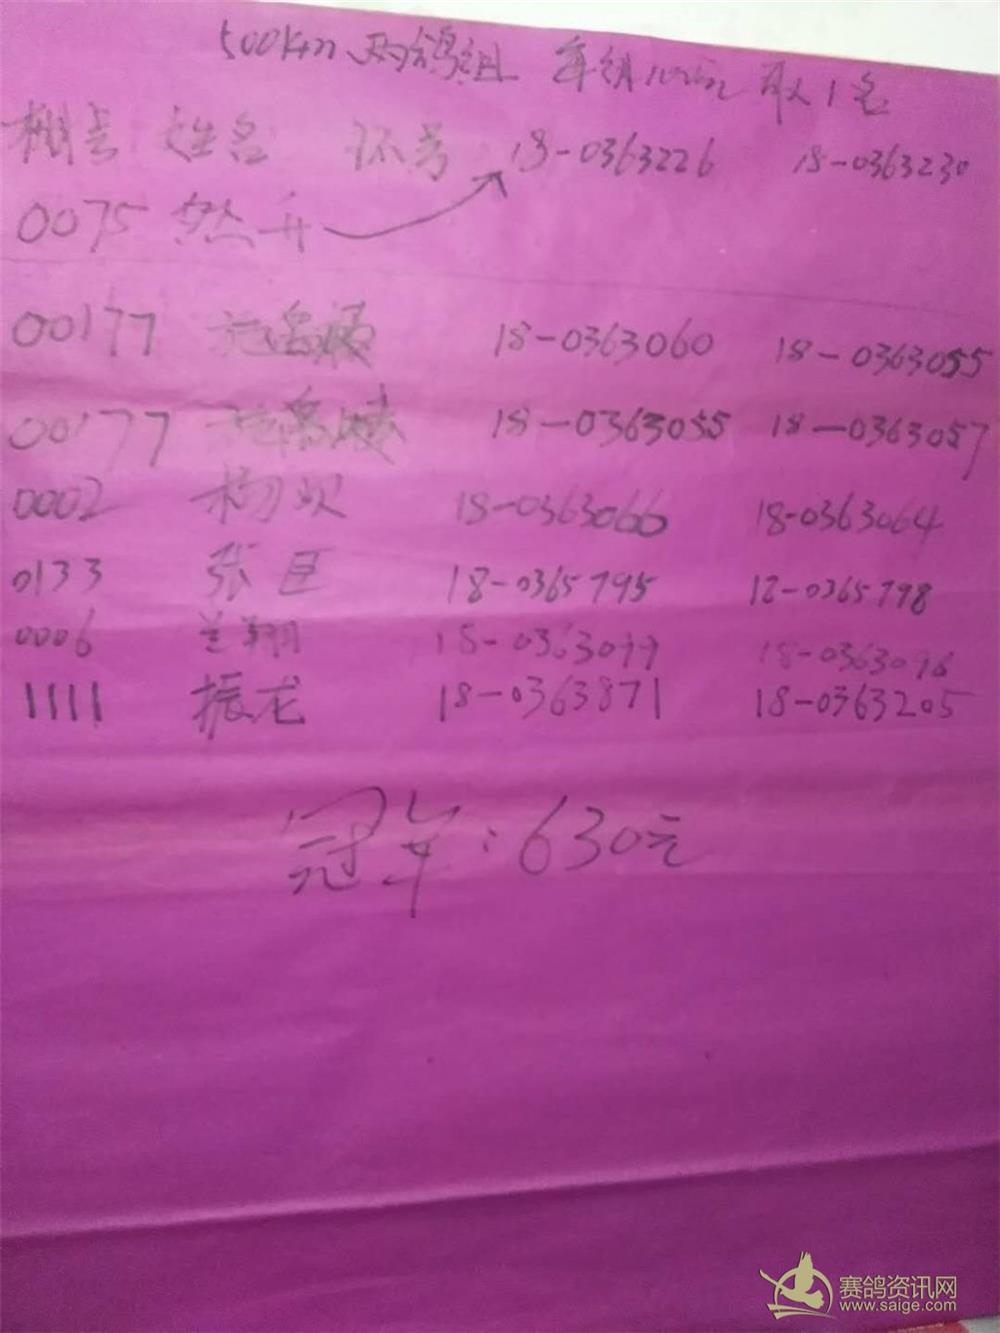 500Km 两鸽组 每组100元 取1名
棚号 姓名 环号 18-0363226 18-0363230
0075 然升
00177 18-0363060 18-0363055
00177 18-0363055 18-0363057
0002 18-0363066 18-0363064
0133 张臣 18-0365795 18-0365798
0006 兰翔 18-0363099 18-0363096
1111 振龙 18-0363871 18-0363205
冠军:630元
赛鸽资讯网
www.saige.com